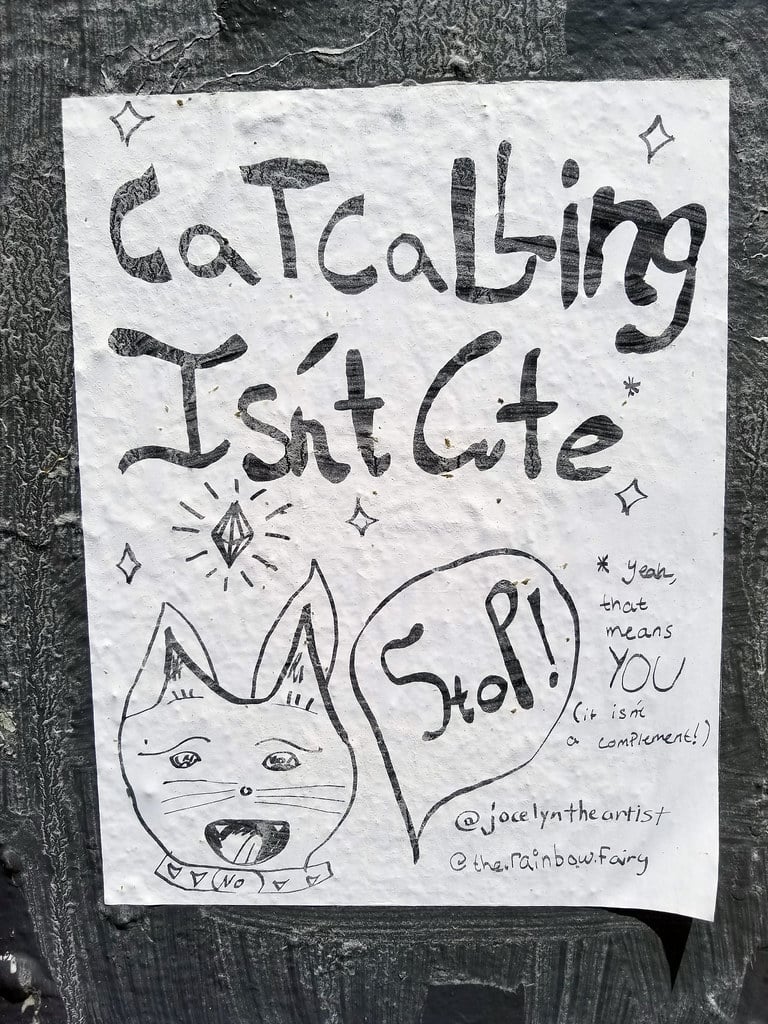 CaTcaLLing
Isn't Cute*
Stop!
* yeah,
that
means
YOU
(it isn't
a complement!)
@jocelyntheartist
@the.rainbow.fairy
No